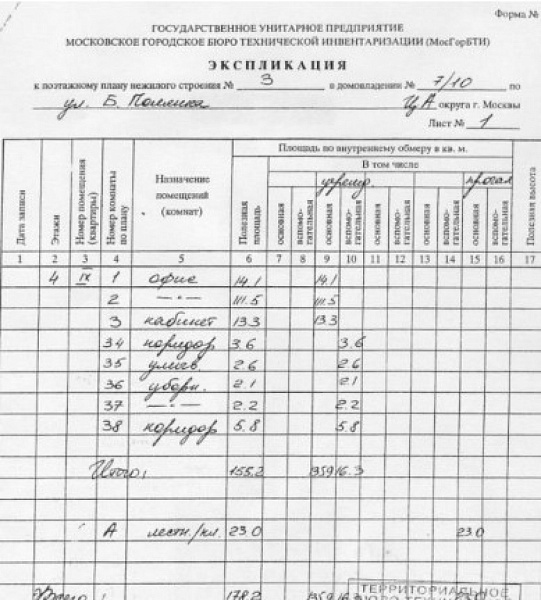 Форма №
ГОСУДАРСТВЕННОЕ УНИТАРНОЕ ПРЕДПРИЯТИЕ
МОСКОВСКОЕ ГОРОДСКОЕ БЮРО ТЕХНИЧЕСКОЙ ИНВЕНТАРИЗАЦИИ (МосГорБТИ)
ЭКСПЛИКАЦИЯ
к поэтажному плану нежилого строения № 3 в домовладении № 7/10 по
ул. Б. Полянка ЦА округа г. Москвы
Лист № 1
Площадь по внутреннему обмеру в кв. м.
В том числе
учрежд. прочая
Дата записи Этажи Номер помещения (квартиры) Номер комнаты по плану Назначение помещений (комнат) Полезная площадь основная вспомогательная основная вспомогательная основная вспомогательная основная вспомогательная основная вспомогательная Полезная высота
1 2 3 4 5 6 7 8 9 10 11 12 13 14 15 16 17
4 IX 1 офис 14.1 14.1
2 —"— 111.5 111.5
3 кабинет 13.3 13.3
34 коридор 3.6 3.6
35 умыв. 2.6 2.6
36 уборн. 2.1 2.1
37 —"— 2.2 2.2
38 коридор 5.8 5.8
Итого: 155.2 135.9 16.3
А лестн./кл. 23.0 23.0
Всего: 178.2
ТЕРРИТОРИАЛЬНОЕ